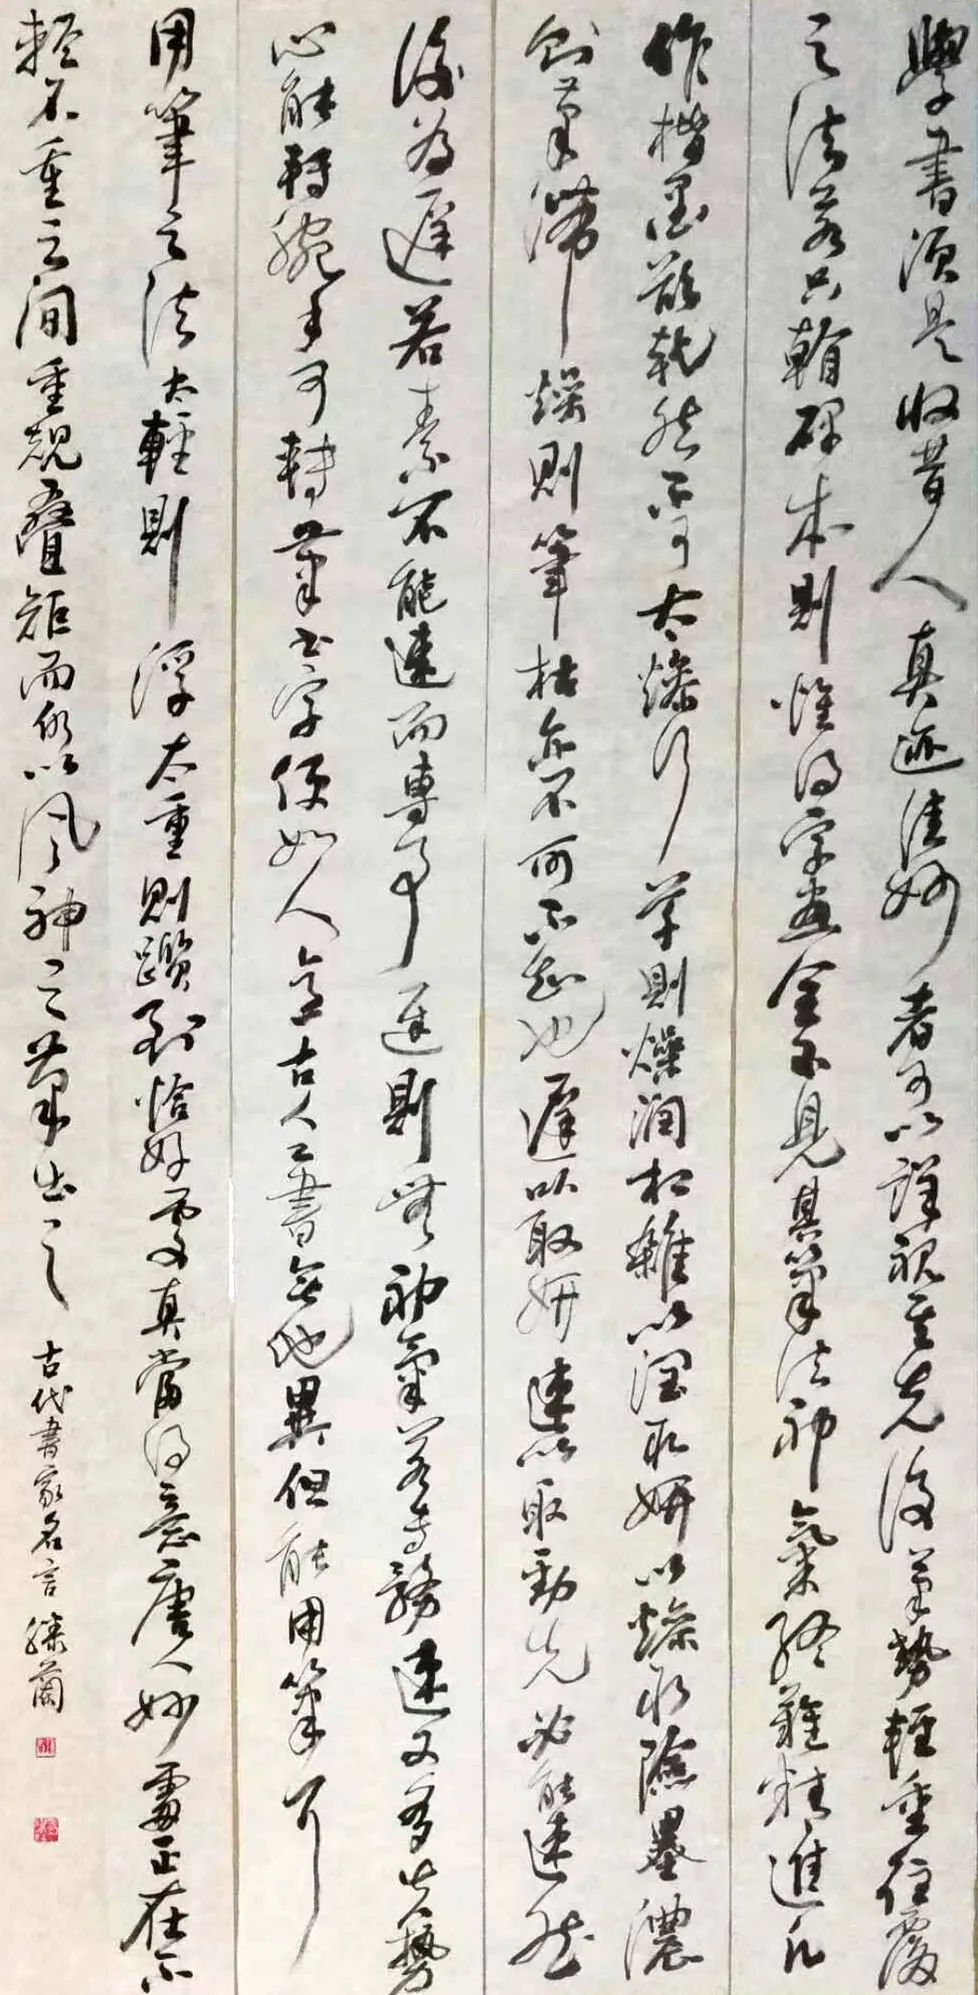 學書須是收昔人真迹佳妙者可以詳視其先後筆勢輕重往復
之法若只看碑本則惟得字畫全不見其筆法神氣終難精進凡
作楷墨欲乾然不可太燥行草則燥潤相雜以潤取妍以燥取險墨濃
則筆滯燥則筆枯亦不可不知也遲以取妍速以取勁先必能速然
後為遲若素不能速而專事遲則無神氣若專務速又多失勢
心能轉腕手可轉筆書字便如人意古人工書無他異但能用筆耳
用筆之法太輕則浮太重則躓到恰好處真當得意唐人妙處正在不
輕不重之間重規叠矩而仍以風神之筆出之
古代書家名言